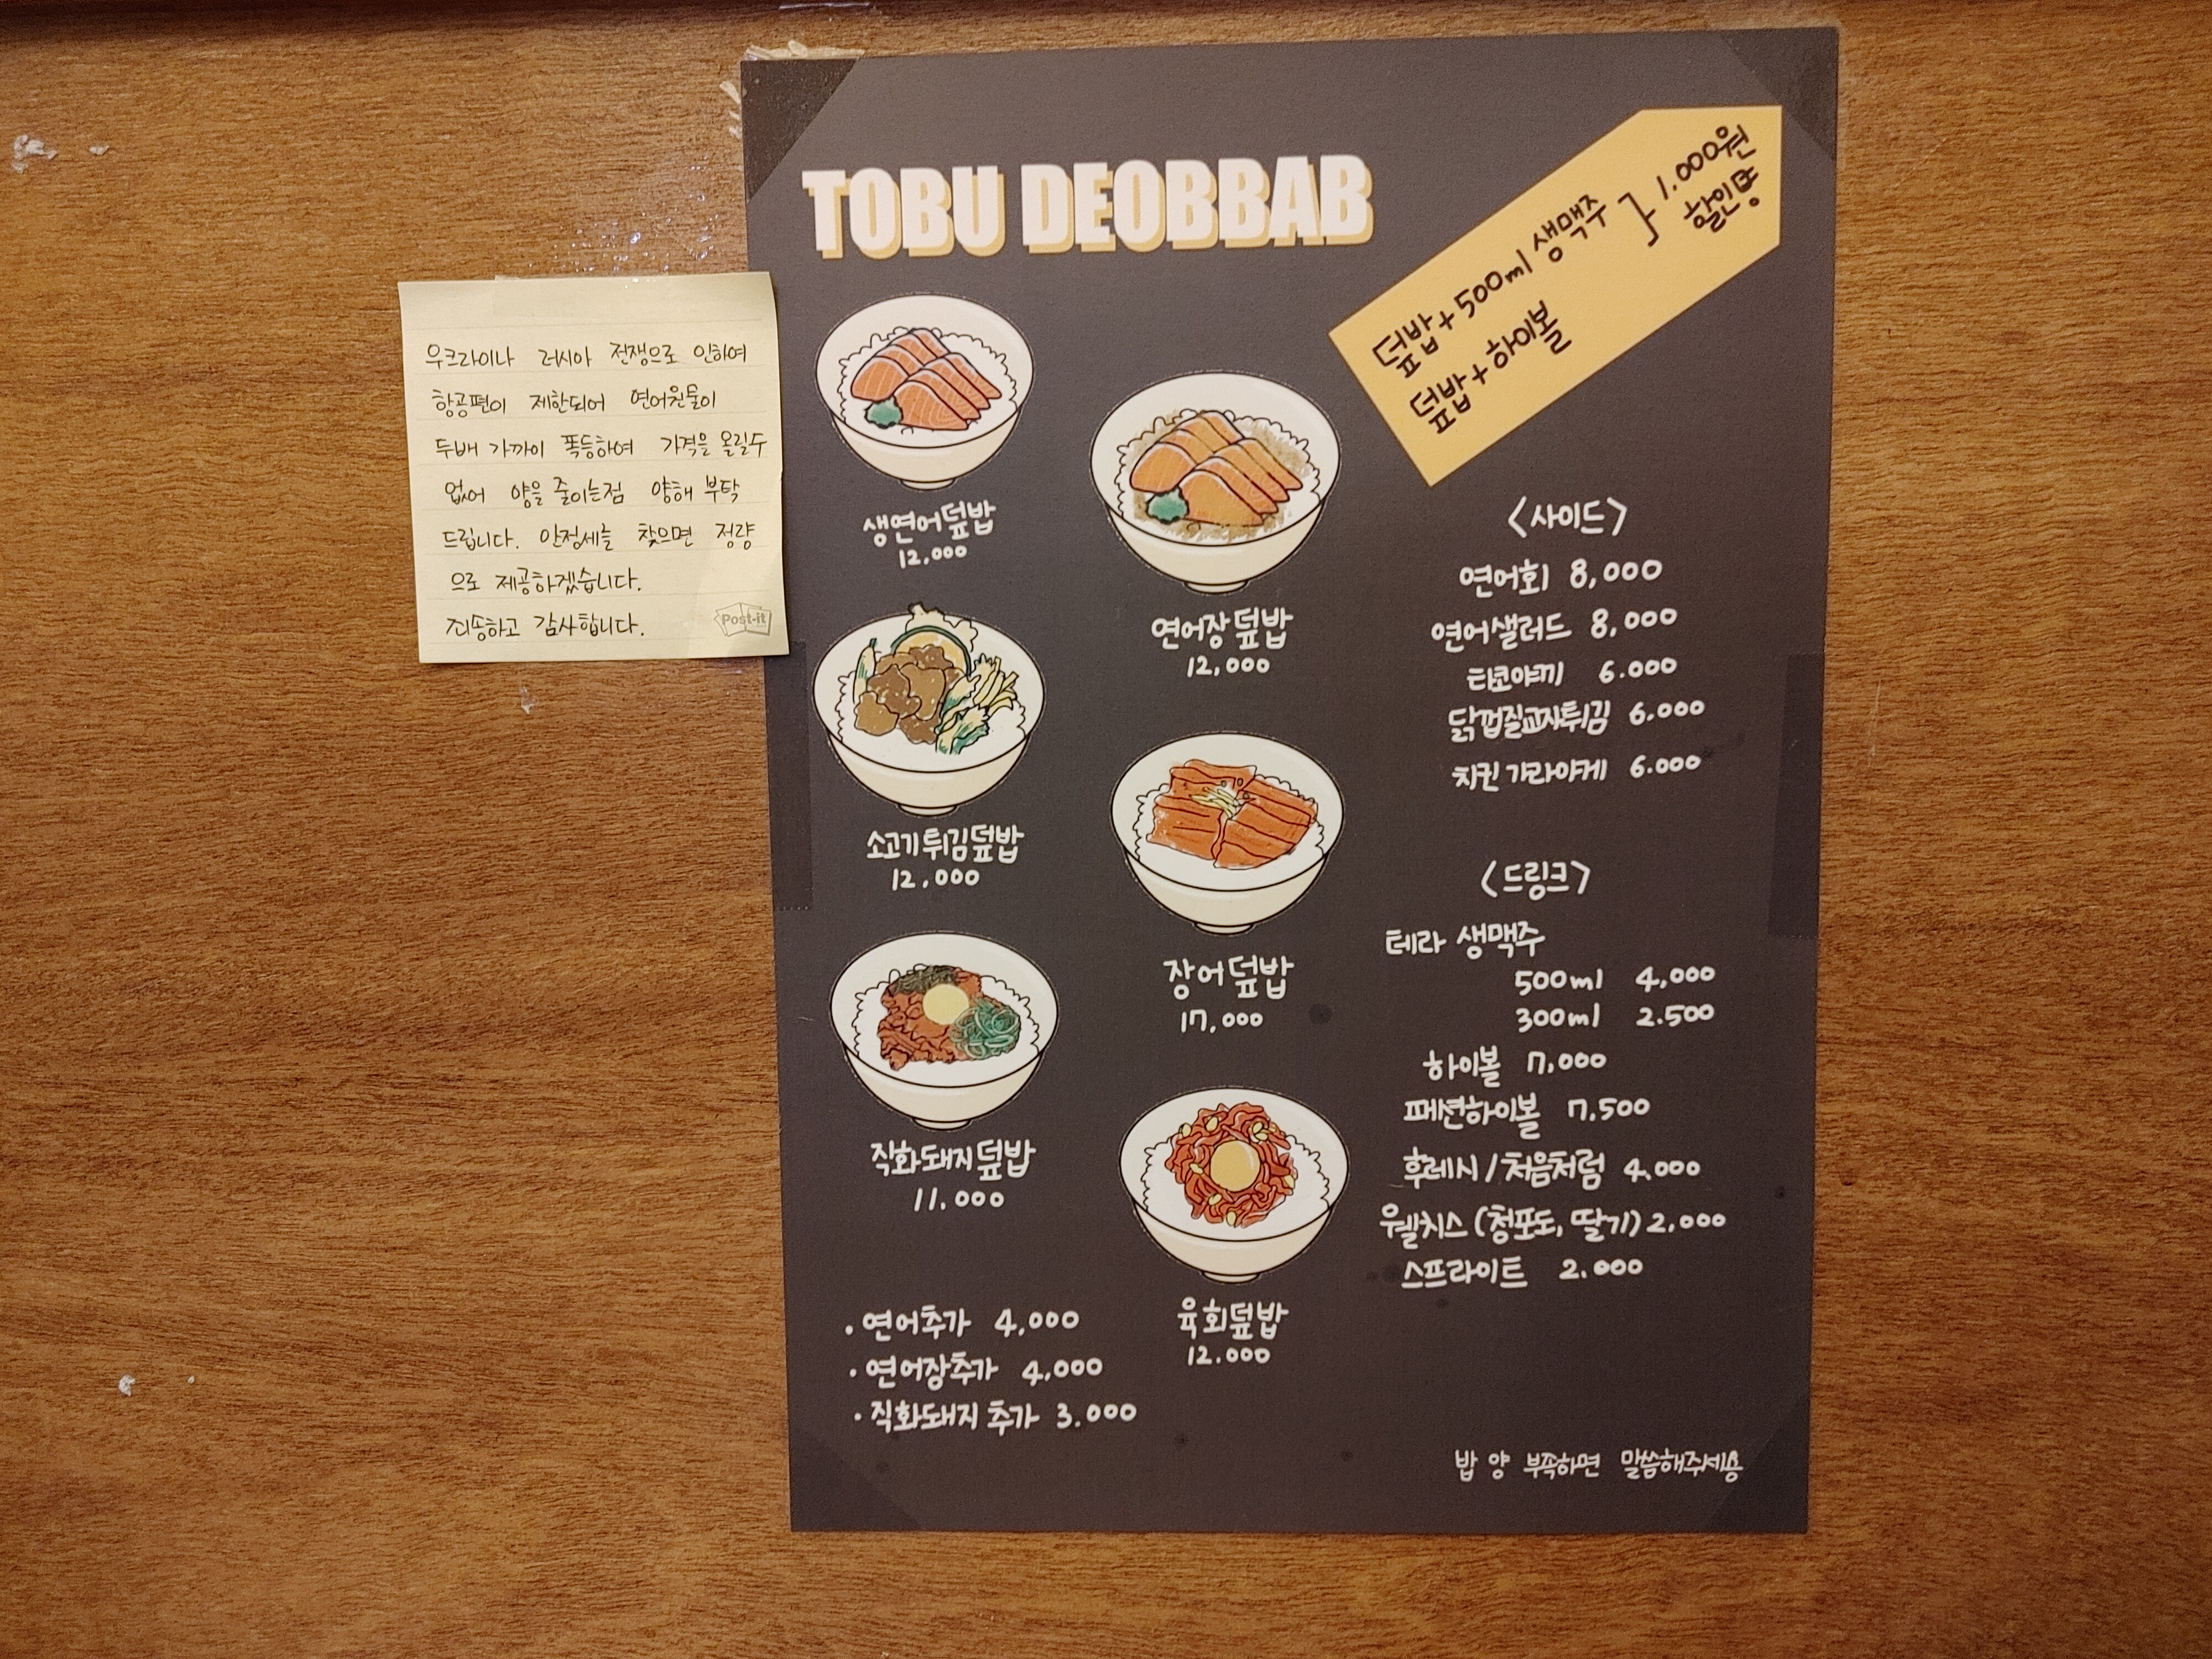 우크라이나 러시아 전쟁으로 인하여
항공편이 제한되어 연어원물이
두배 가까이 폭등하여 가격을 올릴수
없어 양을 줄이는점 양해 부탁
드립니다. 안정세를 찾으면 정량
으로 제공하겠습니다.
죄송하고 감사합니다.
Post-it
TOBU DEOBBAB
덮밥+500ml 생맥주
덮밥+하이볼
} 1,000원
할인뿅
생연어덮밥
12,000
연어장덮밥
12,000
소고기튀김덮밥
12,000
장어덮밥
17,000
직화돼지덮밥
11.000
육회덮밥
12.000
· 연어추가 4,000
· 연어장추가 4,000
· 직화돼지 추가 3.000
<사이드>
연어회 8,000
연어샐러드 8,000
타코야끼 6.000
닭껍질교자튀김 6.000
치킨 가라아게 6.000
<드링크>
테라 생맥주
500ml 4,000
300ml 2.500
하이볼 7,000
패션하이볼 7,500
후레쉬/처음처럼 4.000
웰치스 (청포도, 딸기) 2,000
스프라이트 2.000
밥 양 부족하면 말씀해주세용